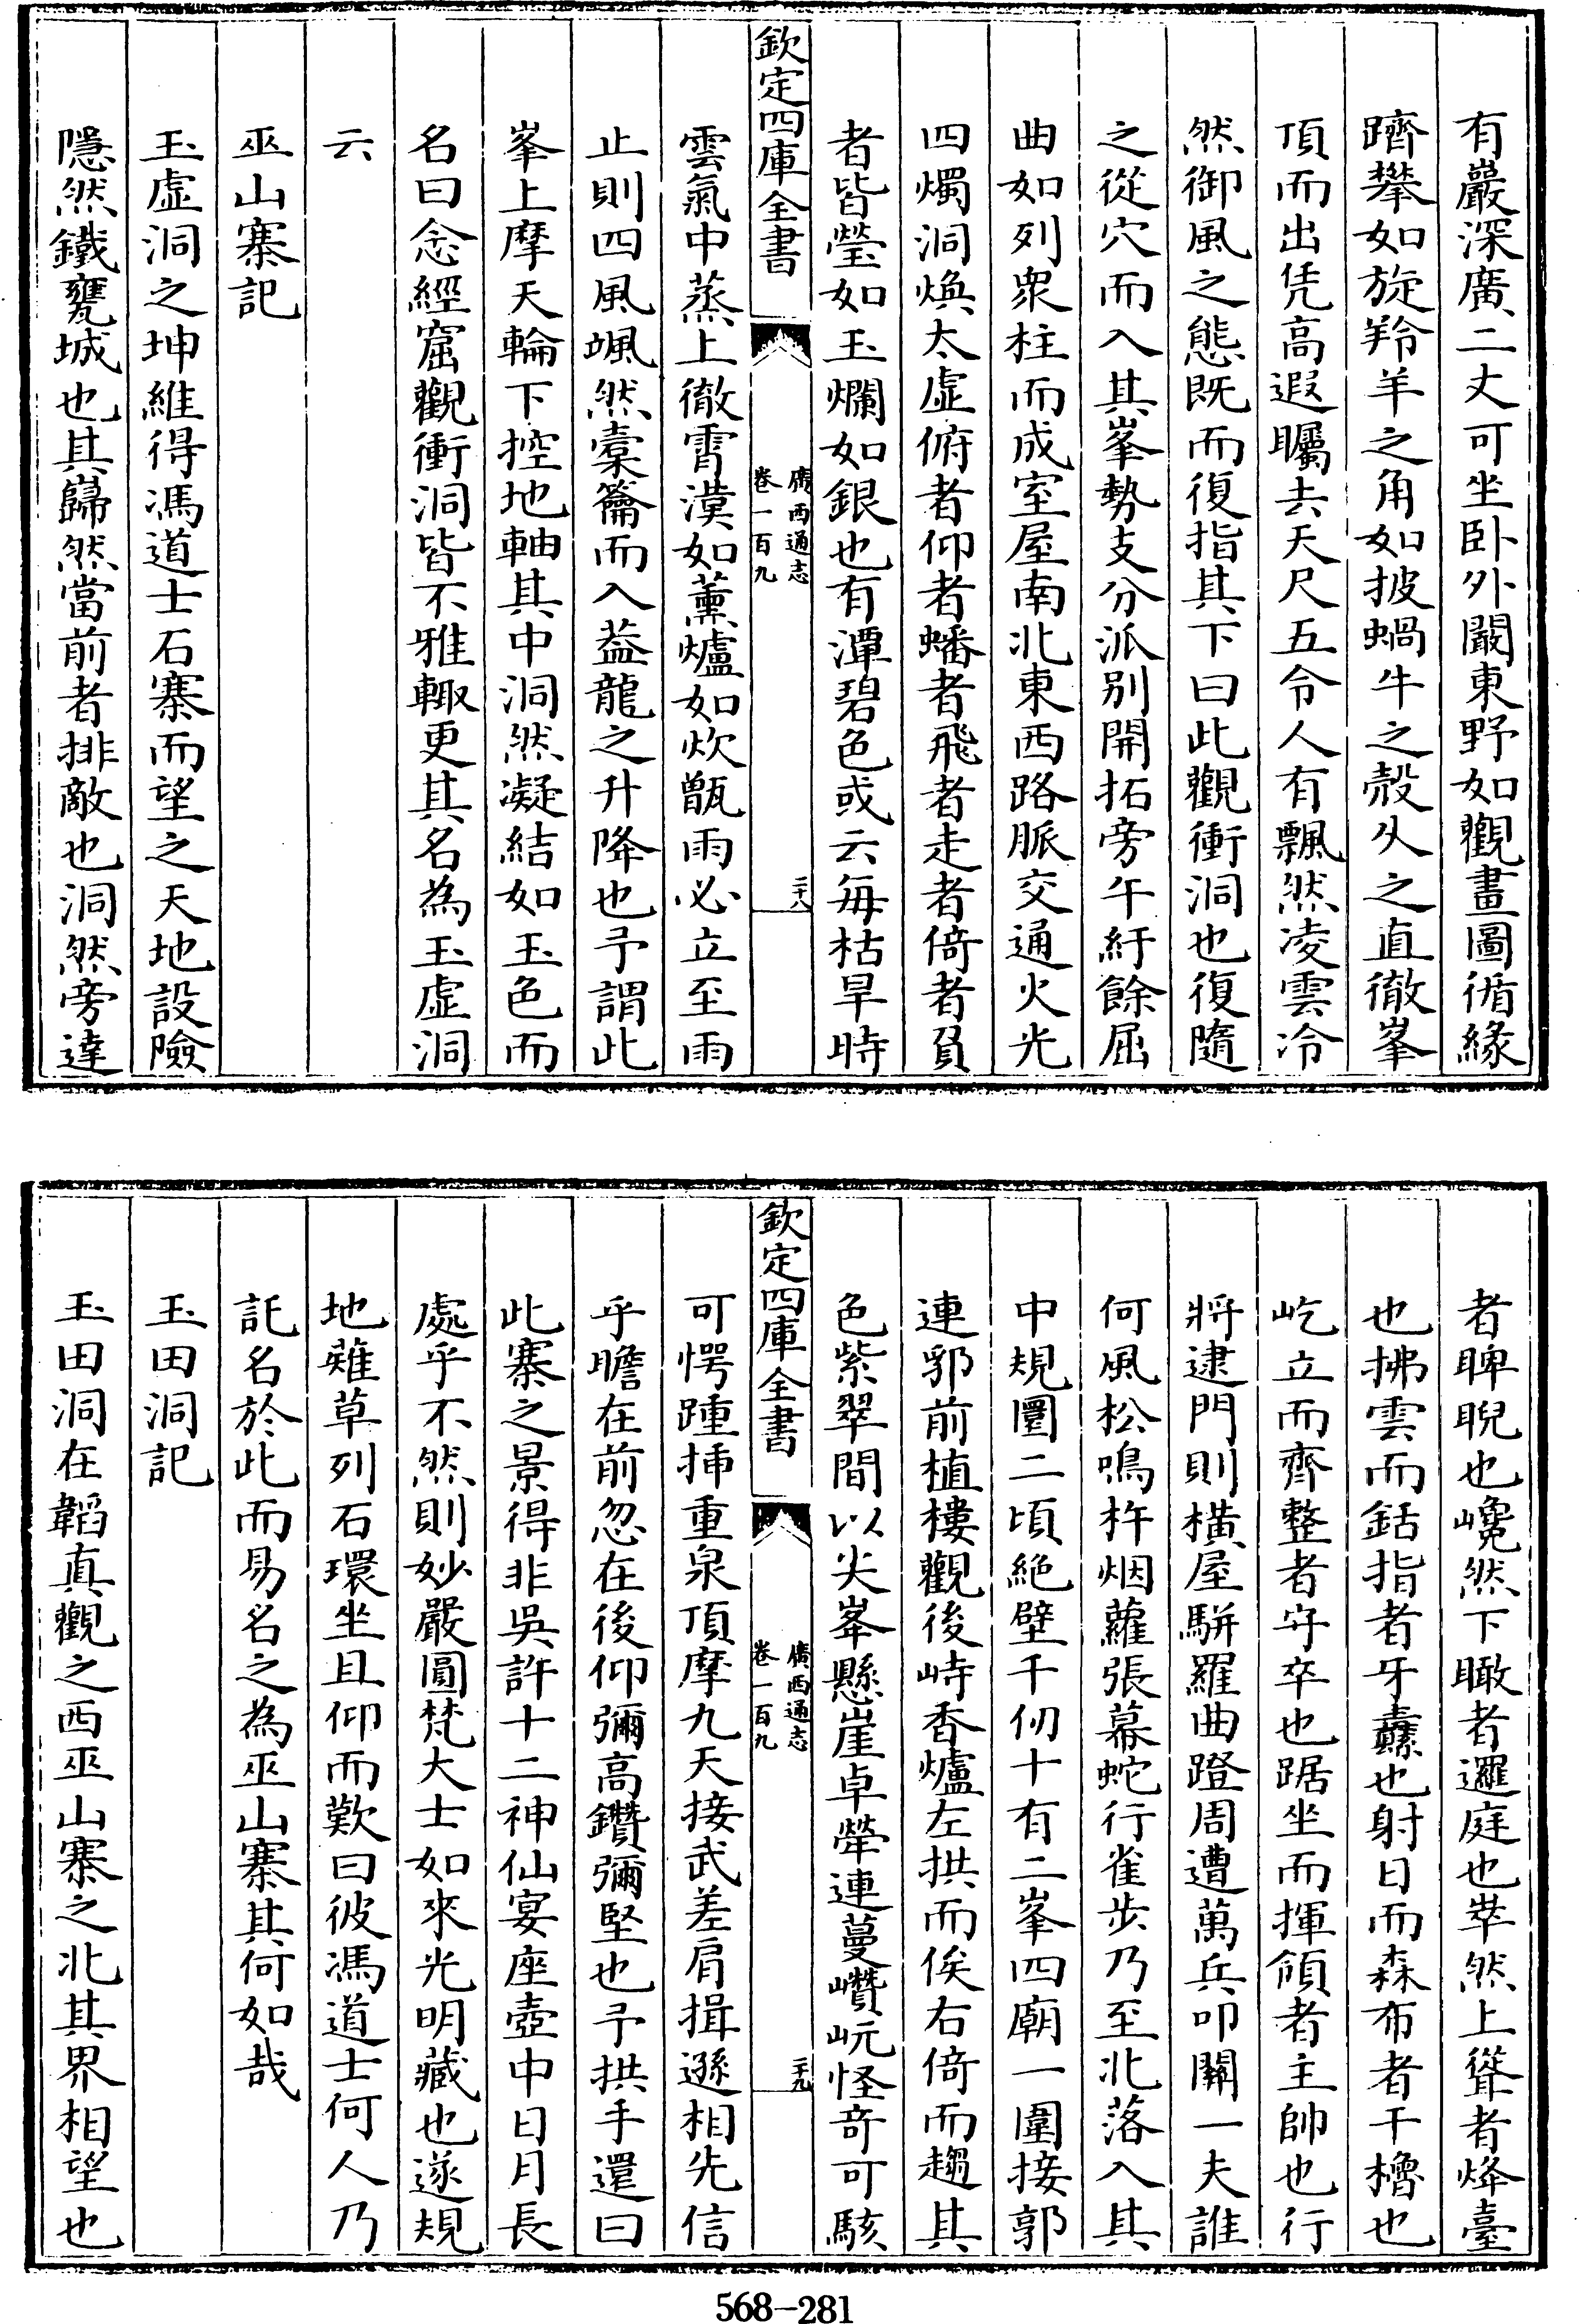 有巖深廣二丈可坐卧外闞東野如觀畫圖循緣
躋攀如旋羚羊之角如披蝸牛之殼久之直徹峯
頂而出凭高遐矚去天尺五令人有飄然凌雲冷
然御風之態既而復指其下曰此觀衝洞也復隨
之從穴而入其峯勢支分派别開拓旁午紆餘屈
曲如列衆柱而成室屋南北東西路脈交通火光
四燭洞煥太虛俯者仰者蟠者飛者走者倚者負
者皆瑩如玉爛如銀也有潭碧色或云每枯旱時
欽定四庫全書
廣西通志
卷一百九
二十八
雲氣中蒸上徹霄漢如薰爐如炊甑雨必立至雨
止則四風颯然橐籥而入葢龍之升降也予謂此
峯上摩天輪下控地軸其中洞然凝結如玉色而
名曰念經窟觀衝洞皆不雅輙更其名為玉虛洞
云
巫山寨記
玉虛洞之坤維得馮道士石寨而望之天地設險
隱然鐵甕城也其巋然當前者排敵也洞然旁達
者睥睨也巉然下瞰者邏庭也崒然上聳者烽臺
也拂雲而銛指者牙纛也射日而森布者干櫓也
屹立而齊整者守卒也踞坐而揮領者主帥也行
將逮門則橫屋駢羅曲蹬周遭萬兵叩關一夫誰
何風松鳴柝烟蘿張幕蛇行雀步乃至北落入其
中規圜二頃絶壁千仞十有二峯四廟一圍接郭
連郛前植樓觀後峙香爐左拱而俟右倚而趨其
色紫翠間以尖峯懸崖卓犖連蔓巑岏怪竒可駭
欽定四庫全書
廣西通志
卷一百九
二十九
可愕踵揷重泉頂摩九天接武差肩揖遜相先信
乎瞻在前忽在後仰彌高鑽彌堅也予拱手還曰
此寨之景得非吳許十二神仙宴座壺中日月長
處乎不然則妙嚴圓梵大士如來光明藏也遂規
地薙草列石環坐且仰而歎曰彼馮道士何人乃
託名於此而易名之為巫山寨其何如哉
玉田洞記
玉田洞在韜真觀之西巫山寨之北其界相望也
568-281